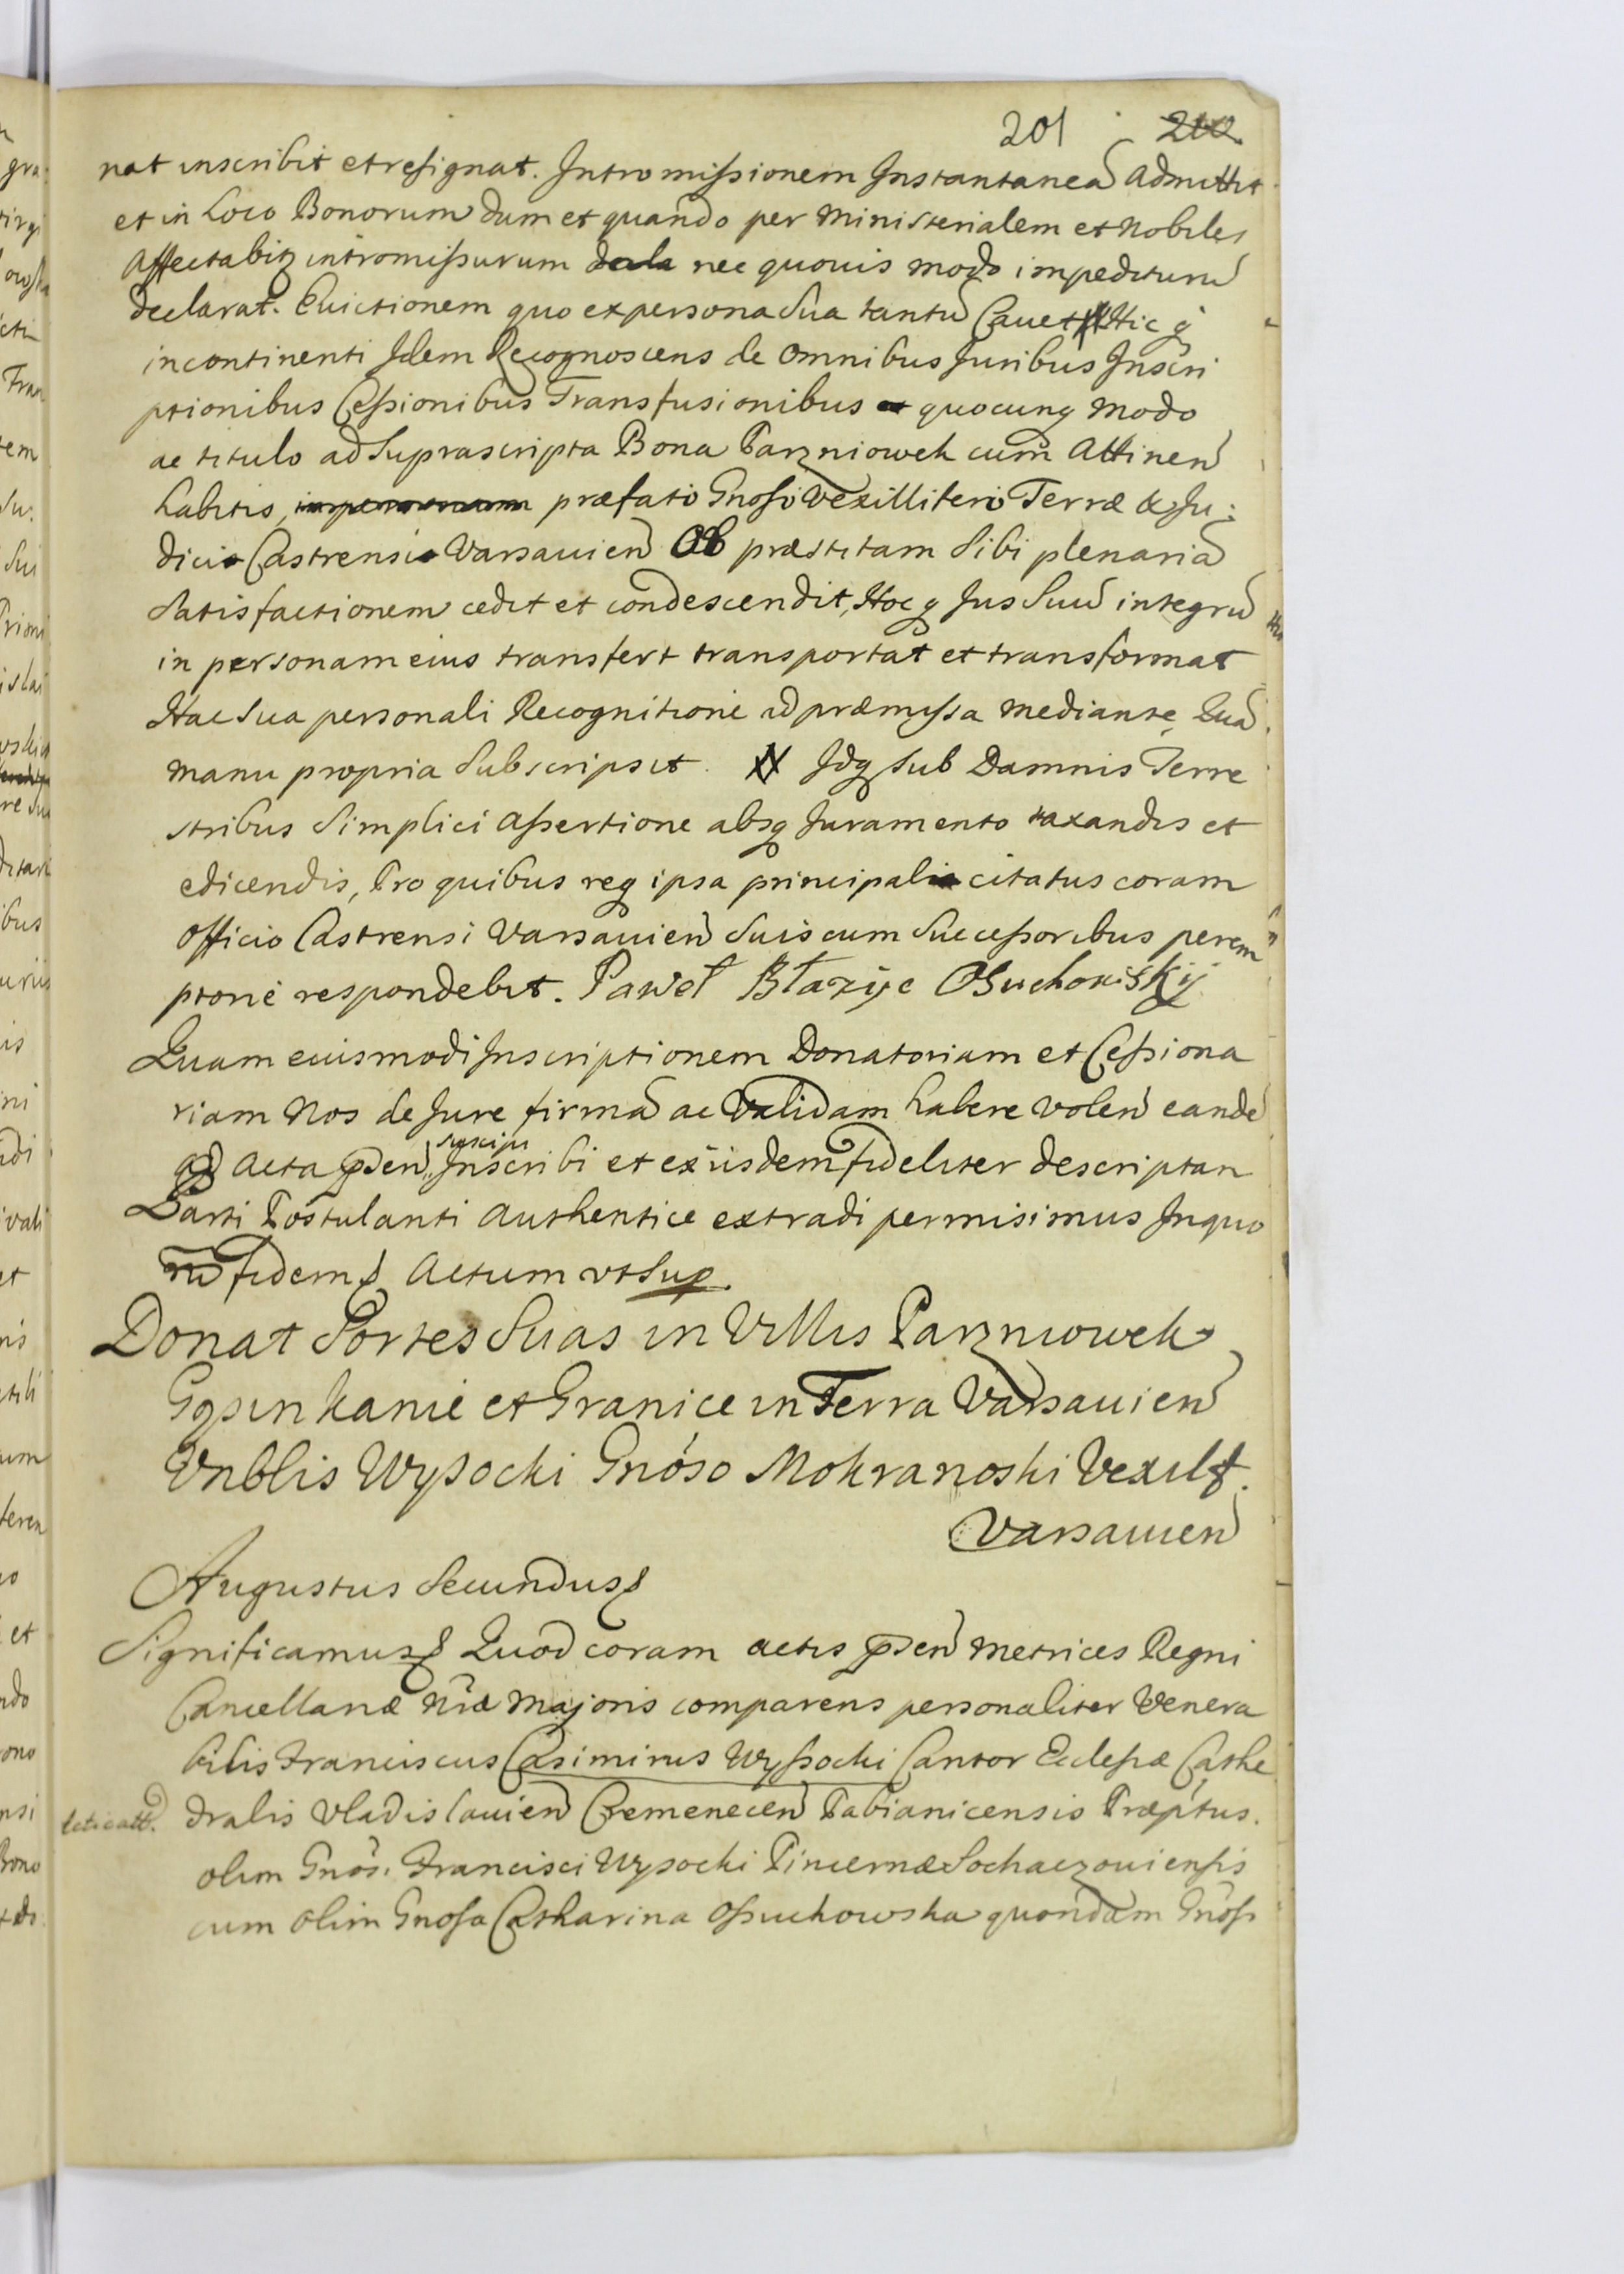 201 200
nat inscribit et resignat. Intromissionem Instantaneā Admittit
et in Loco Bonorum dum et quando per Ministerialem et Nobiles
Affectabiꝫ intromissurum nec quouis modo impediturū
declarat. Euictionem quo ex persona Sua tantū Cauet Hic q̨
incontinenti Idem Recognoscens de Omnibus Juribus Inscri
ptionibus Cessionibus Transfusionibus quocunq̨ Modo
ac titulo ad Suprascripta Bona Parzniowek cum Attinen̄
habitis, præfato Gnoso Vexillifero Terræ & Ju:
dicio Castrensi Varsauien̄ Ob præstitam Sibi plenariā
Satisfactionem cedit et condescendit, Hocq̨ Jus Suū integrū
in personam eius transfert transportat et transformat
Hac Sua personali Recognitione ad præmissa mediante, Quā
manu propria Subscripsit. Idq̨ Sub Damnis Terre
stribus Simplici Assertione absq̨ Juramento taxandis et
edicendis, Pro quibus req̨ ipsa principali citatus coram
Officio Castrensi Varsauien̄ Suis cum Successoribus perem
ptorie respondebit. Paweł Błazije OSuchowiskij
Quam euismodi Inscriptionem Donatoriam et Cessiona
riam Nos de Jure firmā ac Validam habere volen̄ eandē
ad Acta p̄den̄ suscipi Inscribi et ex iisdem fideliter descriptan
Parti Postulanti Authentice extradi permisimus In quo
rū fidem Actum vt Sup.
Donat Sortes Suas in Villis Parzniowek
Gąsin kanie et Granice in Terra Varsauien̄
Vnblis Wysocki Gnoso Mokranoski Vexilf.
Varsauien̄
Augustus Secundus
Significamus Quod coram actis p̄den̄ Metrices Regni
Cancellariæ Nræ Majoris comparens personaliter Venera
bilis Franciscus Casimirus Wyssocki Cantor Eclesiæ Cathe
dralis Vladislauien̄ Czemenecen̄ Pabianicensis Præptus.
olim Gnosi Francisci Wysocki Pincernæ Sochaczouiensis
cum olim Gnosa Catharina Ossuchowska quondam Gnosi